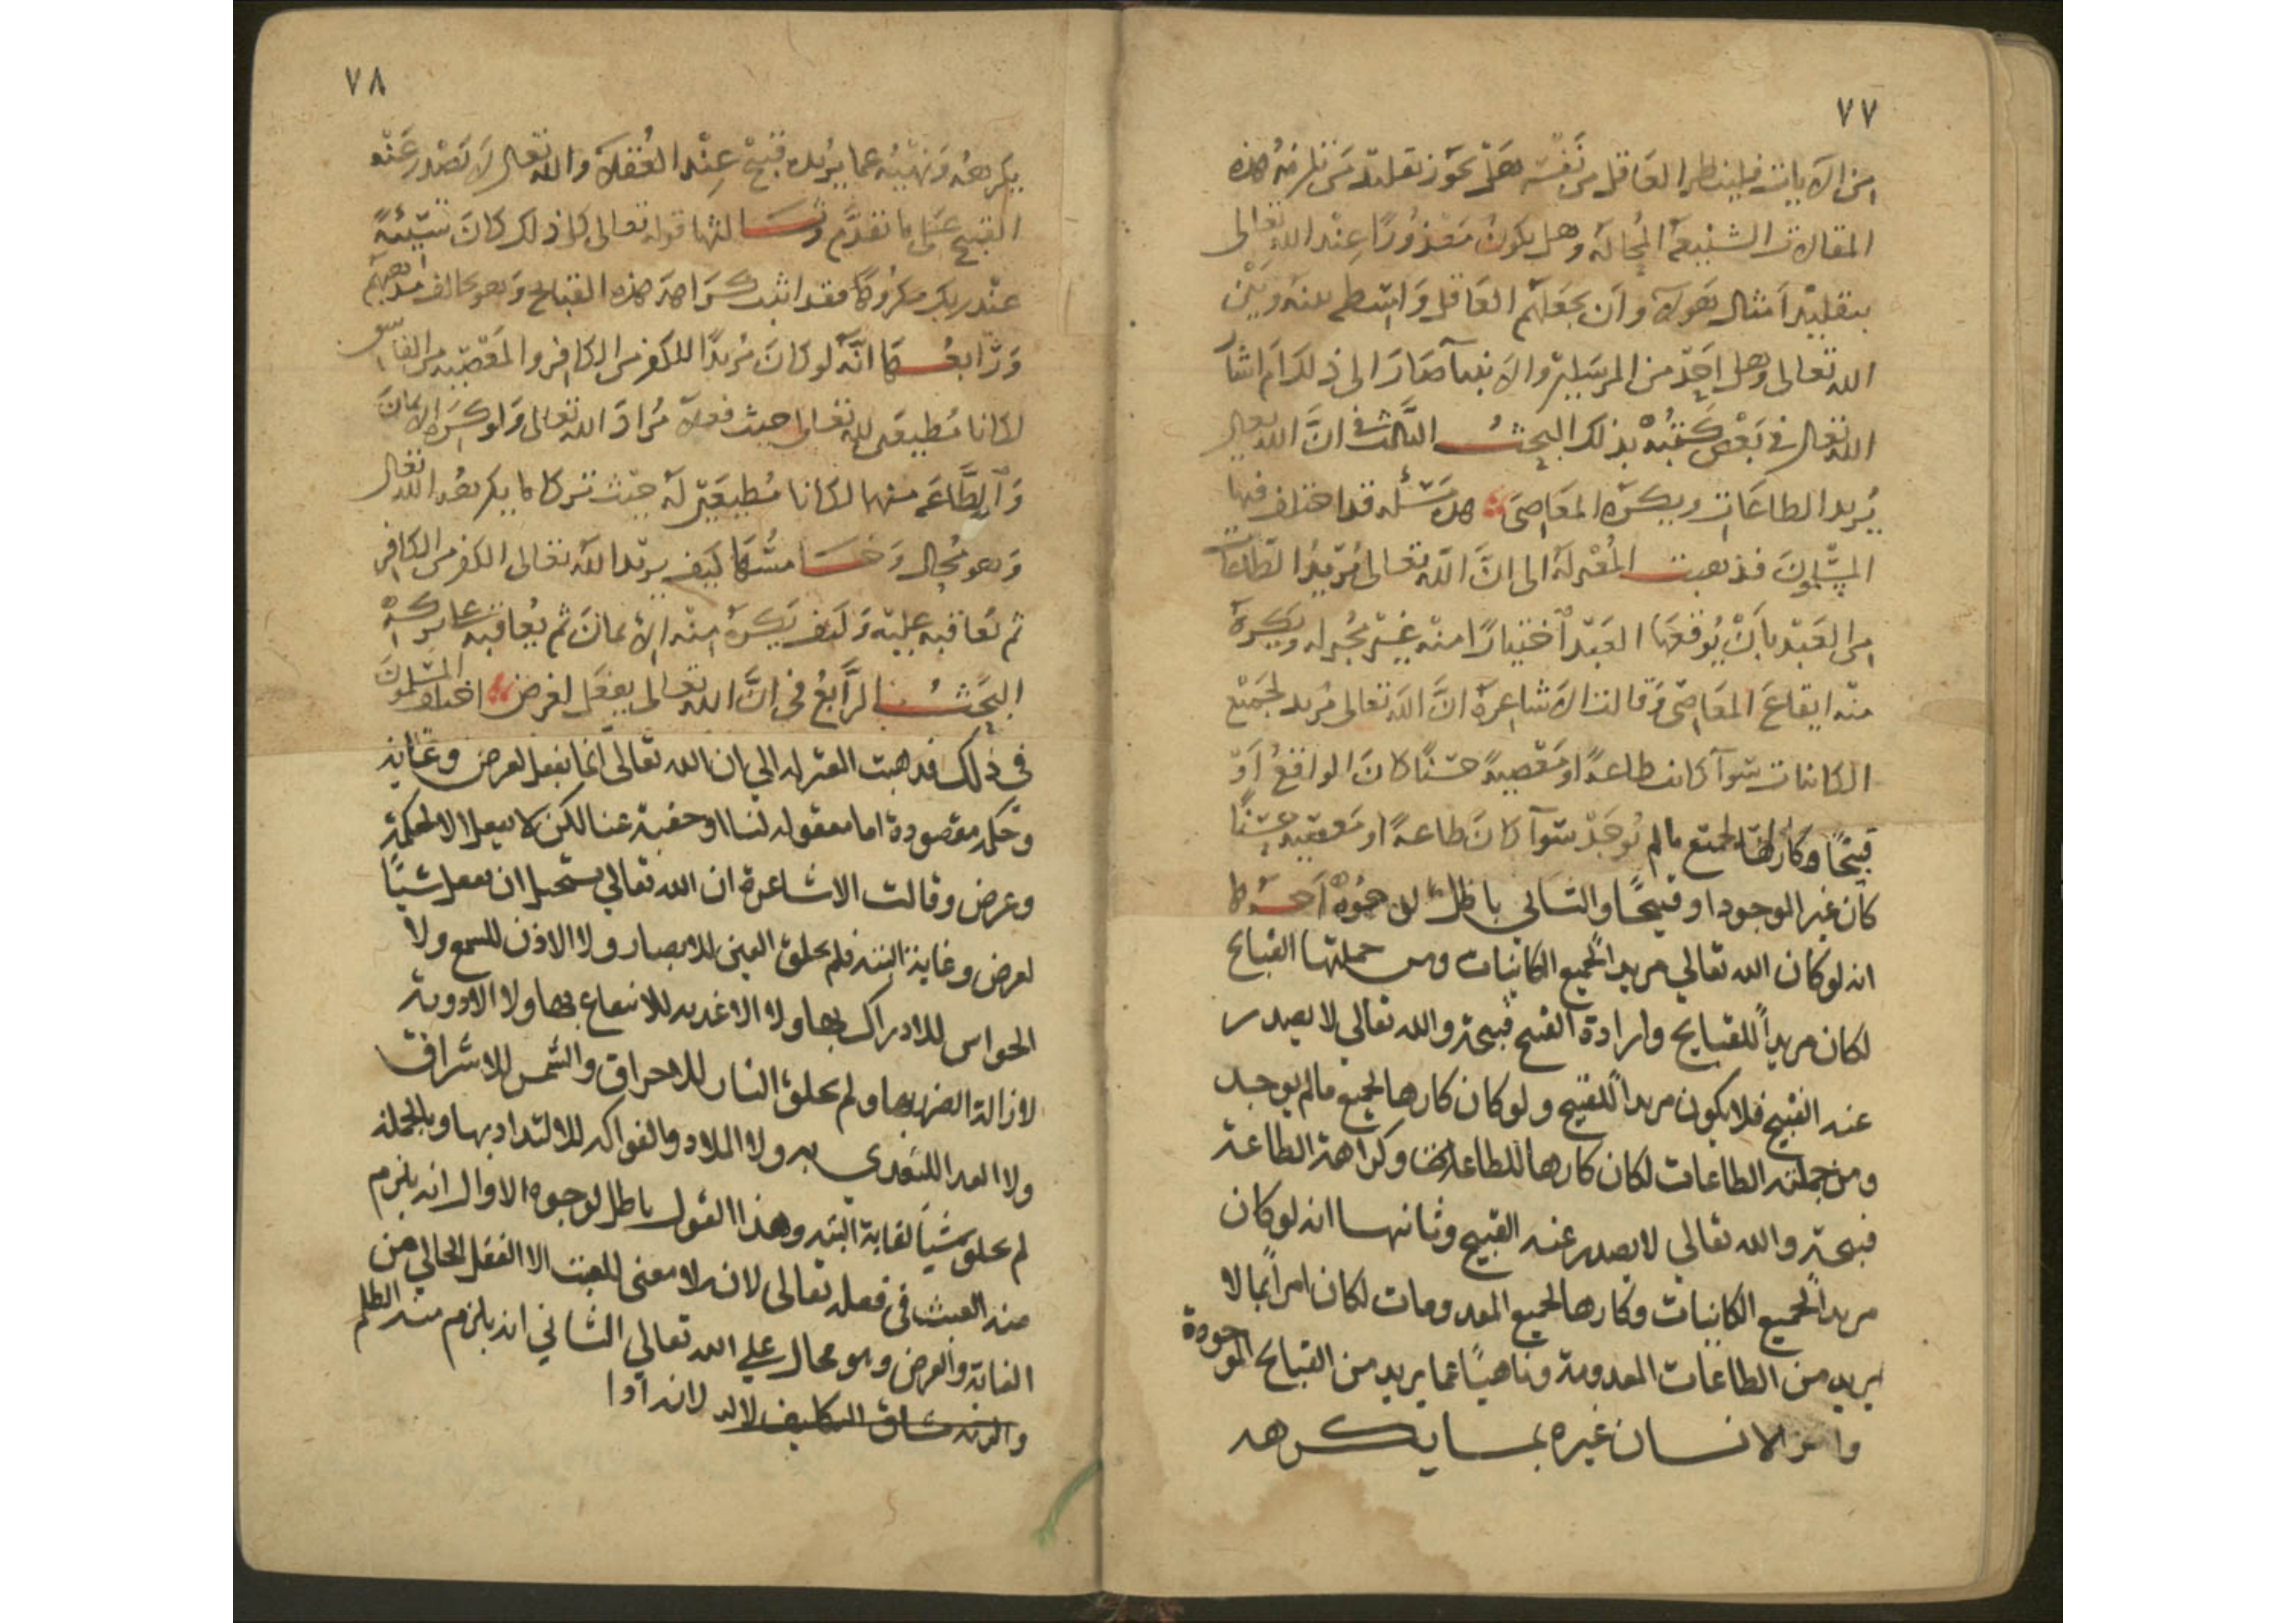 ٧٧
من الايات فلينظر العَاقل من نَفْسَه هَل يجوز تقليد مَن تلزمهُ هذه
المقالات الشنيعَة المحالَة وهل يكونُ مَعْذُورًا عِنْد الله تعالى
بتقليْد اَمثال هَولآء وان يجعَلهم العَاقل وَاسطه بينه وبَيْن
الله تعالى وهل اَحدٌ من المرسَلين والانبيآ صَارَ الى ذلك اَم اشار
الله تعالى فى بَعْض كُتُبه بذلك البحث الثَالث فى انَّ الله تعالى
يُريد الطاعَات ويكره المعَاصىَ هذه مَسْئلة قد اختلف فيها
المسْلمونَ فذهبت المُعْتزلَة الى انَّ الله تعالى يُريْدُ الطاعات
من العَبْد بانْ يُوقعَهَا العَبْد اختيارًا منْه غيْر مُجبر له ويكره
منْه ايقاعَ المعَاصى وَقالت الاشاعرة انَّ الله تعالى مُريد لجميْع
الكائنات سَوآ كانت طاعةً او مَعْصيةً حسَنًا كانَ الواقعُ اَوْ
قبيحًا وكارهًا لجميْع مالم يُوجَدْ سَوآ كانَ طاعةً او مَعصيةً حسَنًا
كان غير الموجود او قبيحًا والثاني باطل لوجُوهٍ اَحدُها
انه لو كان الله تعالي مريداً لجميع الكاينات ومن جملتها القبايح
لكان مريداً للقبايح وارادة القبيح قبيحة والله تعالي لا يصدر
عنه القبيح فلا يكون مريداً للقبيح ولو كان كارها لجميع مالم يوجد
ومن جملته الطاعات لكان كارها للطاعات وكراهة الطاعة
قبيحة والله تعالي لا يصدر عنه القبيح وثانيها انه لو كان
مريداً لجميع الكاينات وكارها لجميع المعدومات لكان امراً بما لا
يريد من الطاعات المعدومة وناهيًا عما يريد من القبايح الموجودة
وامر الانسان غيره بما يكرهه
٧٨
يكرهه وَنهْيُه عما يُريْده قبيْح عِنْد العُقلآء والله تعالى لاَ يَصْدر عَنْه
القبيح عَلى ما تقدَّم وَثَالثها قوله تعالى كل ذلك كانَ سَيّئهً
عنْد ربك مكرُوهًا فقد اثبت كَرَاهة هذه القبايح وَهو يخالف مذهبهم
وَرَّابعُهَا انَّه لو كانَ مُريدًا للكفر من الكافر والمعْصيه من الفاسق
لكانا مُطيعَين لله تعالى حيث فعلاَ مُرادَ الله تعالى وَلو كَره الايمانَ
وَالطَّاعَه منهما لكانا مُطيعَين لَه حيْث تركا ما يكرهُه الله تعالى
وَهو مُحال وَخَامسُهَا كيَف يريْد الله تعالى الكفر من الكافر
ثم يُعاقبه عليْه وَكيف يَكرهُ منْه الايمانَ ثم يُعاقبه على تركه
البَحْثُ الرَّابعُ فى انَّ الله تعالى يفعَل لغرض اختلف المسْلمونَ
فى ذلك فذهبت المعتزله الي ان الله تعالىَّ انما يفعل لغرض وغايه
وحكم مقصودة اما معقوله لنا او خفية عنا لكن لا يفعل الا لحكمة
وغرض وقالت الاشاعرة ان الله تعالي يستحيل ان يفعل شيئًا
لغرض وغاية البته فلم يخلق العين للابصار ولا الاذن للسمع ولا
الحواس للادراك بها ولا الاغذيه للانتفاع بها ولا الادوية
لازالة الضرر بها ولم يخلق النار للاحراق والشمس للاشراق
ولا الغدا للتغدى به ولا الملاد والفواكه للالتداد بها وبالجملة
لم يخلق شيئًا لغاية البته وهذا القول باطل لوجوه الاول انه يلزم
منه العبث فى فعله تعالى لانه لا معنى للعبث الا الفعل الخالي من
الغاية والغرض وهو محال علي الله تعالي الثاني انه يلزم منه الظلم
والزنه مشاق التكليف لالد لانه اذا